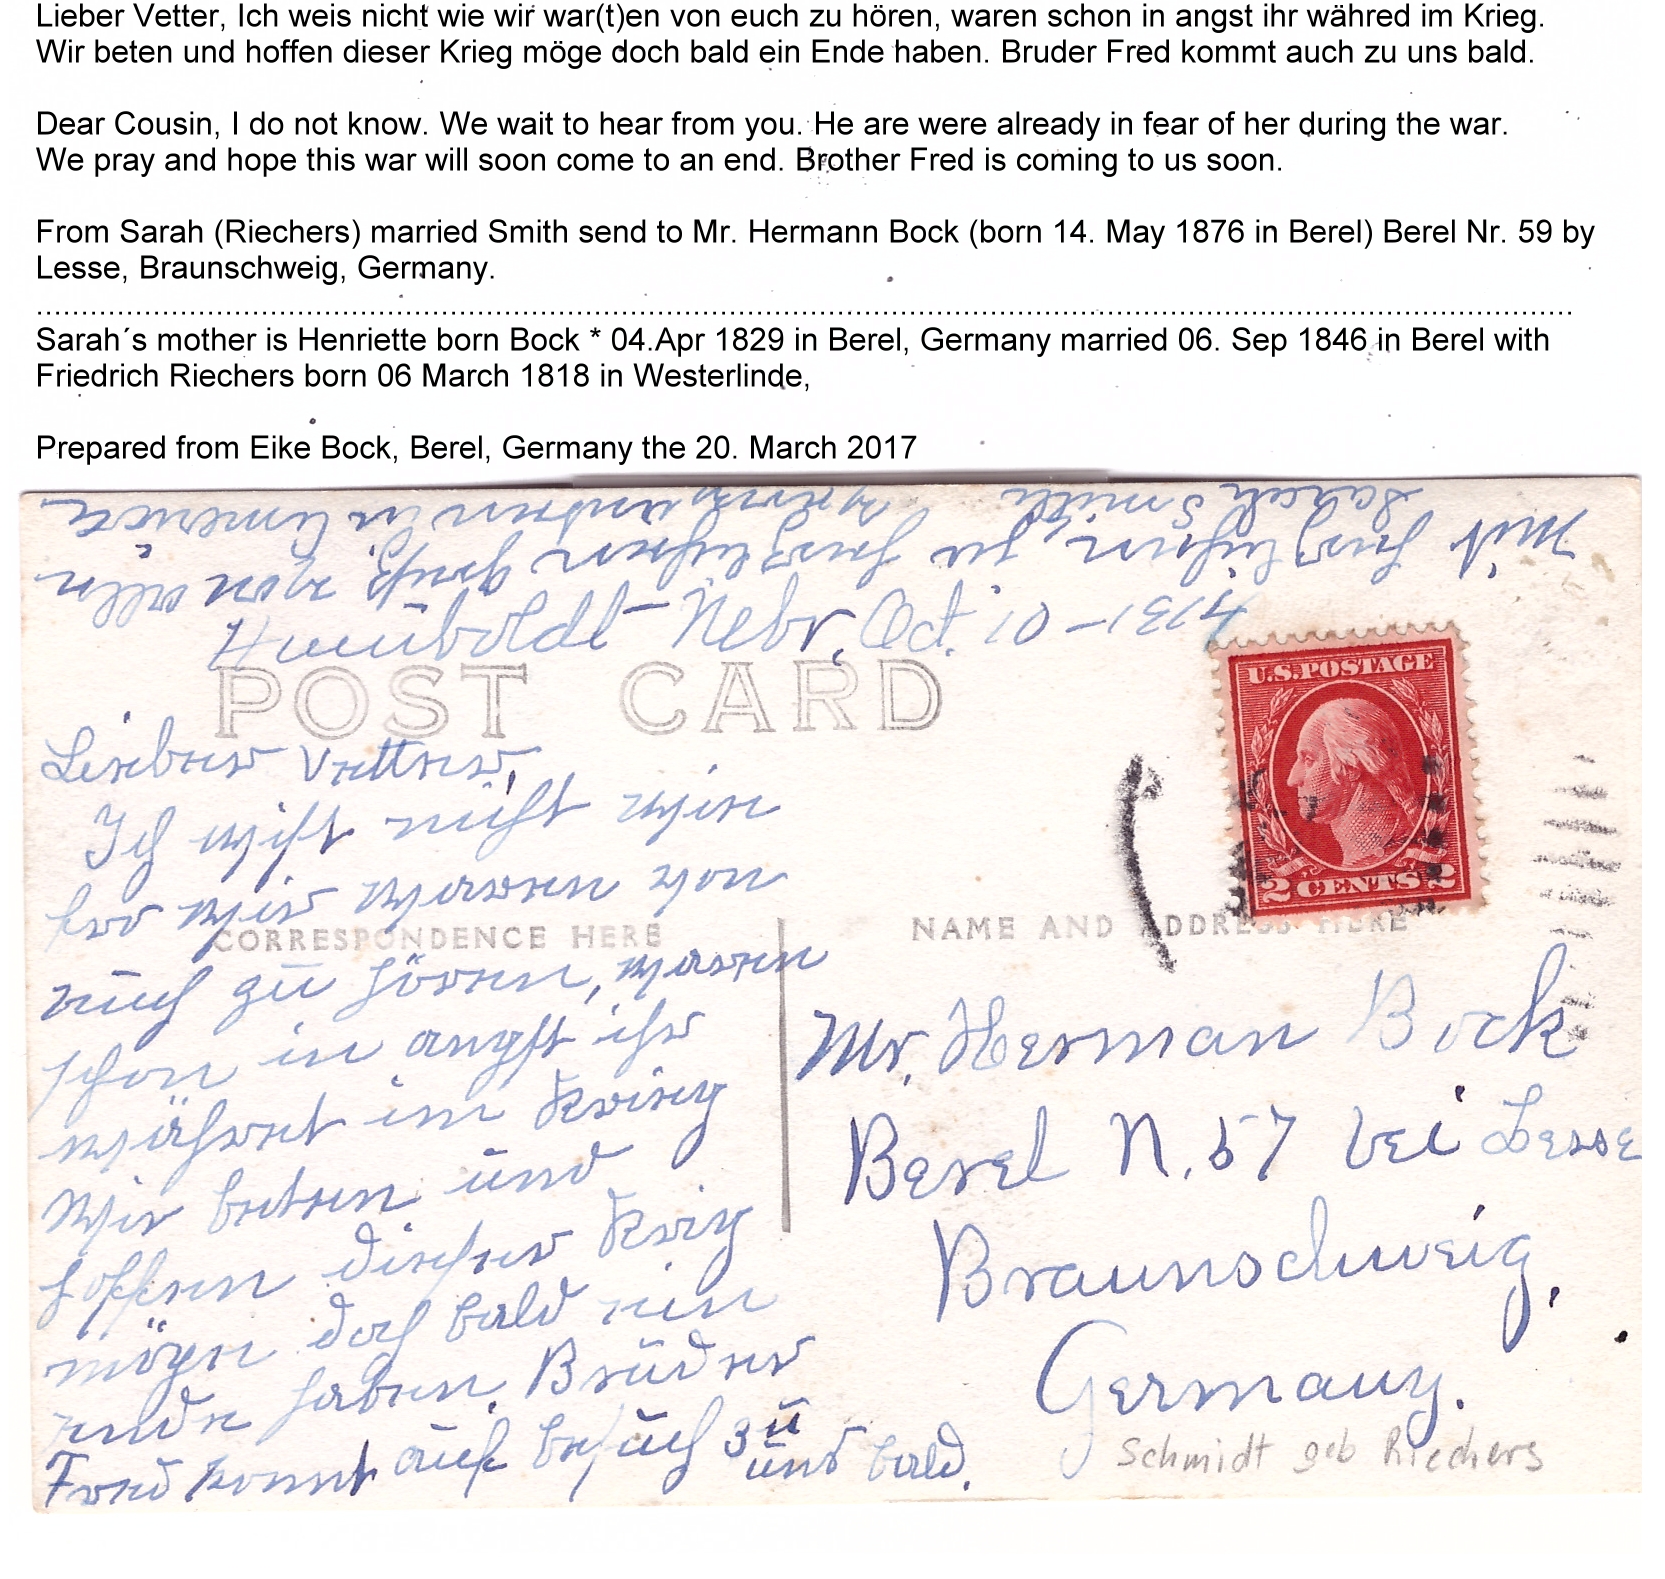 Lieber Vetter, Ich weis nicht wie wir war(t)en von euch zu hören, waren schon in angst ihr währed im Krieg.
Wir beten und hoffen dieser Krieg möge doch bald ein Ende haben. Bruder Fred kommt auch zu uns bald.
Dear Cousin, I do not know. We wait to hear from you. He are were already in fear of her during the war.
We pray and hope this war will soon come to an end. Brother Fred is coming to us soon.
From Sarah (Riechers) married Smith send to Mr. Hermann Bock (born 14. May 1876 in Berel) Berel Nr. 59 by
Lesse, Braunschweig, Germany.
Sarah´s mother is Henriette born Bock * 04.Apr 1829 in Berel, Germany married 06. Sep 1846 in Berel with
Friedrich Riechers born 06 March 1818 in Westerlinde,
Prepared from Eike Bock, Berel, Germany the 20. March 2017
Mit herzlichen zu herzlichen Gruß von allen
verwandten in America
Sarah Smith
Humboldt Nebr. Oct. 10 –
POST CARD
U.S. POSTAGE
2 CENTS 2
Lieber Vetter,
Ich weist nicht wie
wir waren von
CORRESPONDENCE HERE
euch zu hören, waren
schon in angst ihr
währet im Krieg
Wir beten und
hoffen dieser Krieg
möge doch bald ein
ende haben. Bruder
Fred kommt auch besuch zu
uns bald.
NAME AND ADDRESS HERE
Mr. Herman Bock
Berel N. 57 bei Lesse
Braunschweig,
Germany.
Schmidt geb Riechers